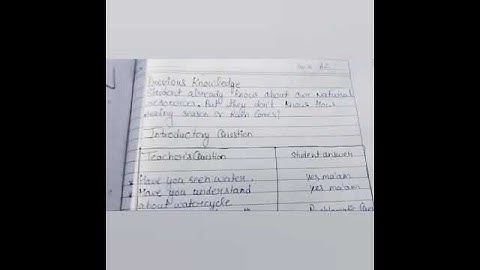 Previous Knowledge
Student already know about our Natural
resources. But they don't know How
rainy season or Rain Comes!
Introductory Question
Teacher's Question Student answer
Have you seen water. yes ma'am
Have you understand yes ma'am
about watercycle